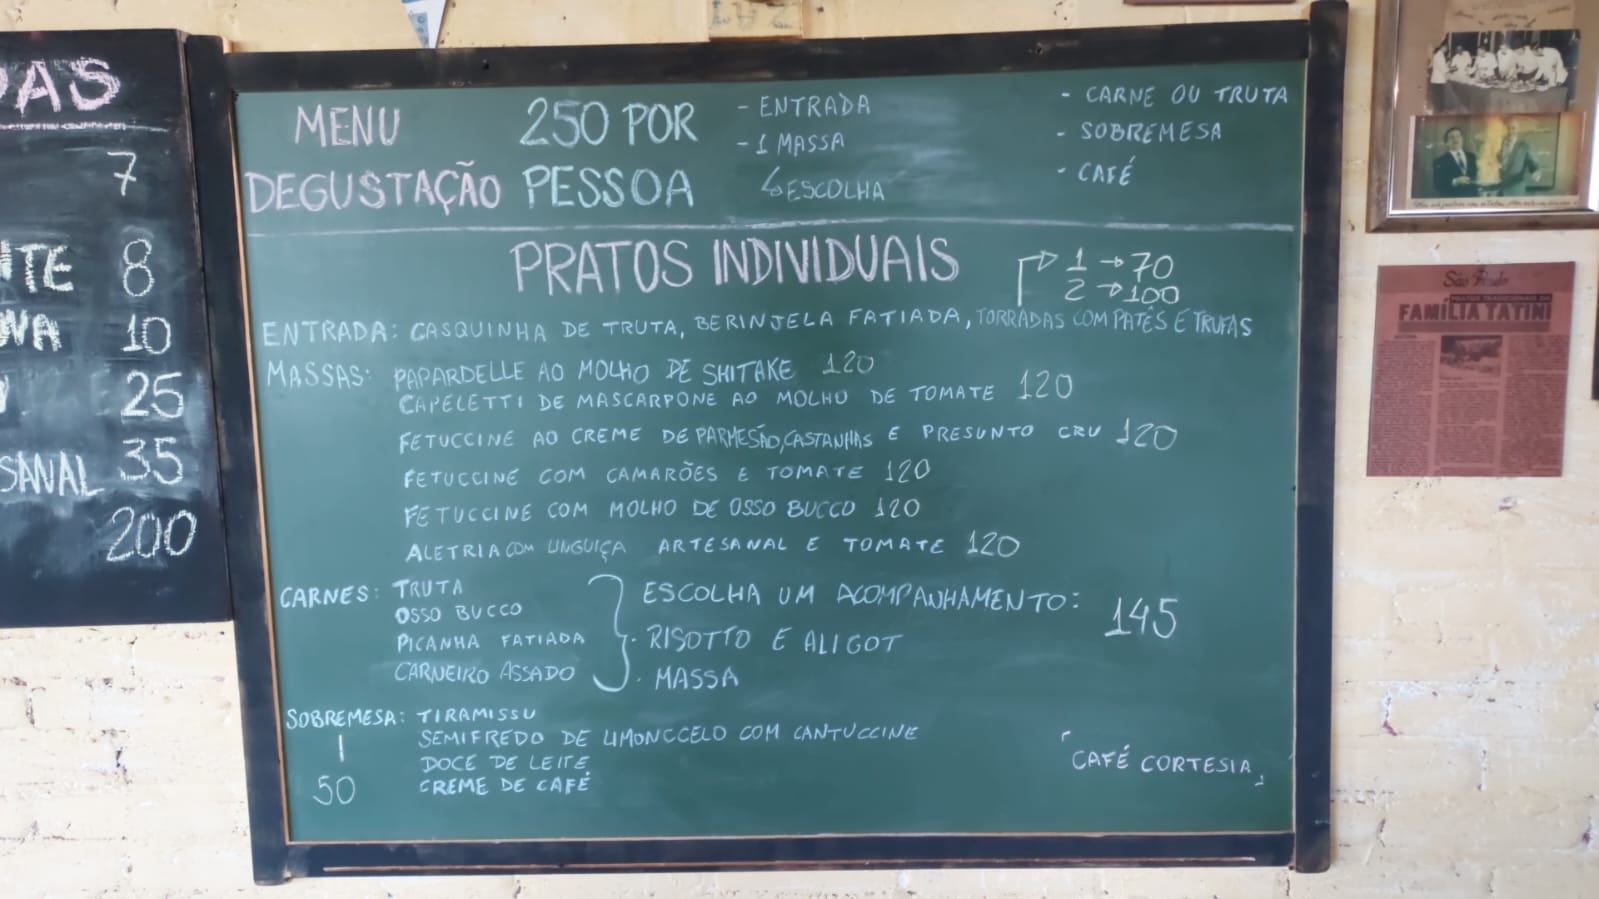 DAS
7
8
10
25
SANAL 35
200
MENU
DEGUSTAÇÃO
250 POR
PESSOA
- ENTRADA
- 1 MASSA
↳ESCOLHA
- CARNE OU TRUTA
- SOBREMESA
- CAFÉ
PRATOS INDIVIDUAIS
1 → 70
2 → 100
ENTRADA: CASQUINHA DE TRUTA, BERINJELA FATIADA, TORRADAS COM PATÊS E TRUFAS
MASSAS: PAPARDELLE AO MOLHO DE SHITAKE 120
CAPELETTI DE MASCARPONE AO MOLHO DE TOMATE 120
FETUCCINE AO CREME DE PARMESÃO, CASTANHAS E PRESUNTO CRU 120
FETUCCINE COM CAMARÕES E TOMATE 120
FETUCCINE COM MOLHO DE OSSO BUCCO 120
ALETRIA COM LINGUIÇA ARTESANAL E TOMATE 120
CARNES: TRUTA
OSSO BUCCO
PICANHA FATIADA
CARNEIRO ASSADO
ESCOLHA UM ACOMPANHAMENTO:
· RISOTTO E ALIGOT
· MASSA
145
SOBREMESA: TIRAMISSU
SEMIFREDO DE LIMONCCELO COM CANTUCCINE
DOCE DE LEITE
CREME DE CAFÉ
50
「CAFÉ CORTESIA」
São Paulo
FAMÍLIA TATINI